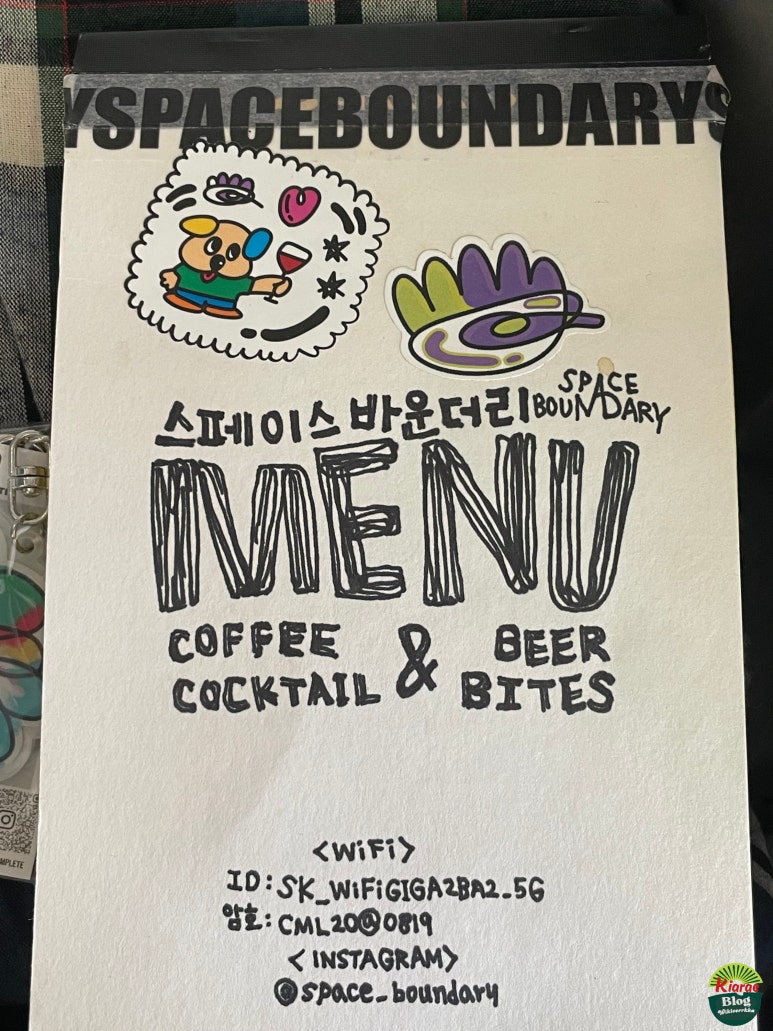 YSPACEBOUNDARYS
스페이스 바운더리
SPACE
BOUNDARY
MENU
COFFEE & BEER
COCKTAIL BITES
<WiFi>
ID: SK_WiFiGIGA2BA2_5G
암호: CML20@0819
<INSTAGRAM>
@space_boundary
MPLETE
Kiarae
Blog